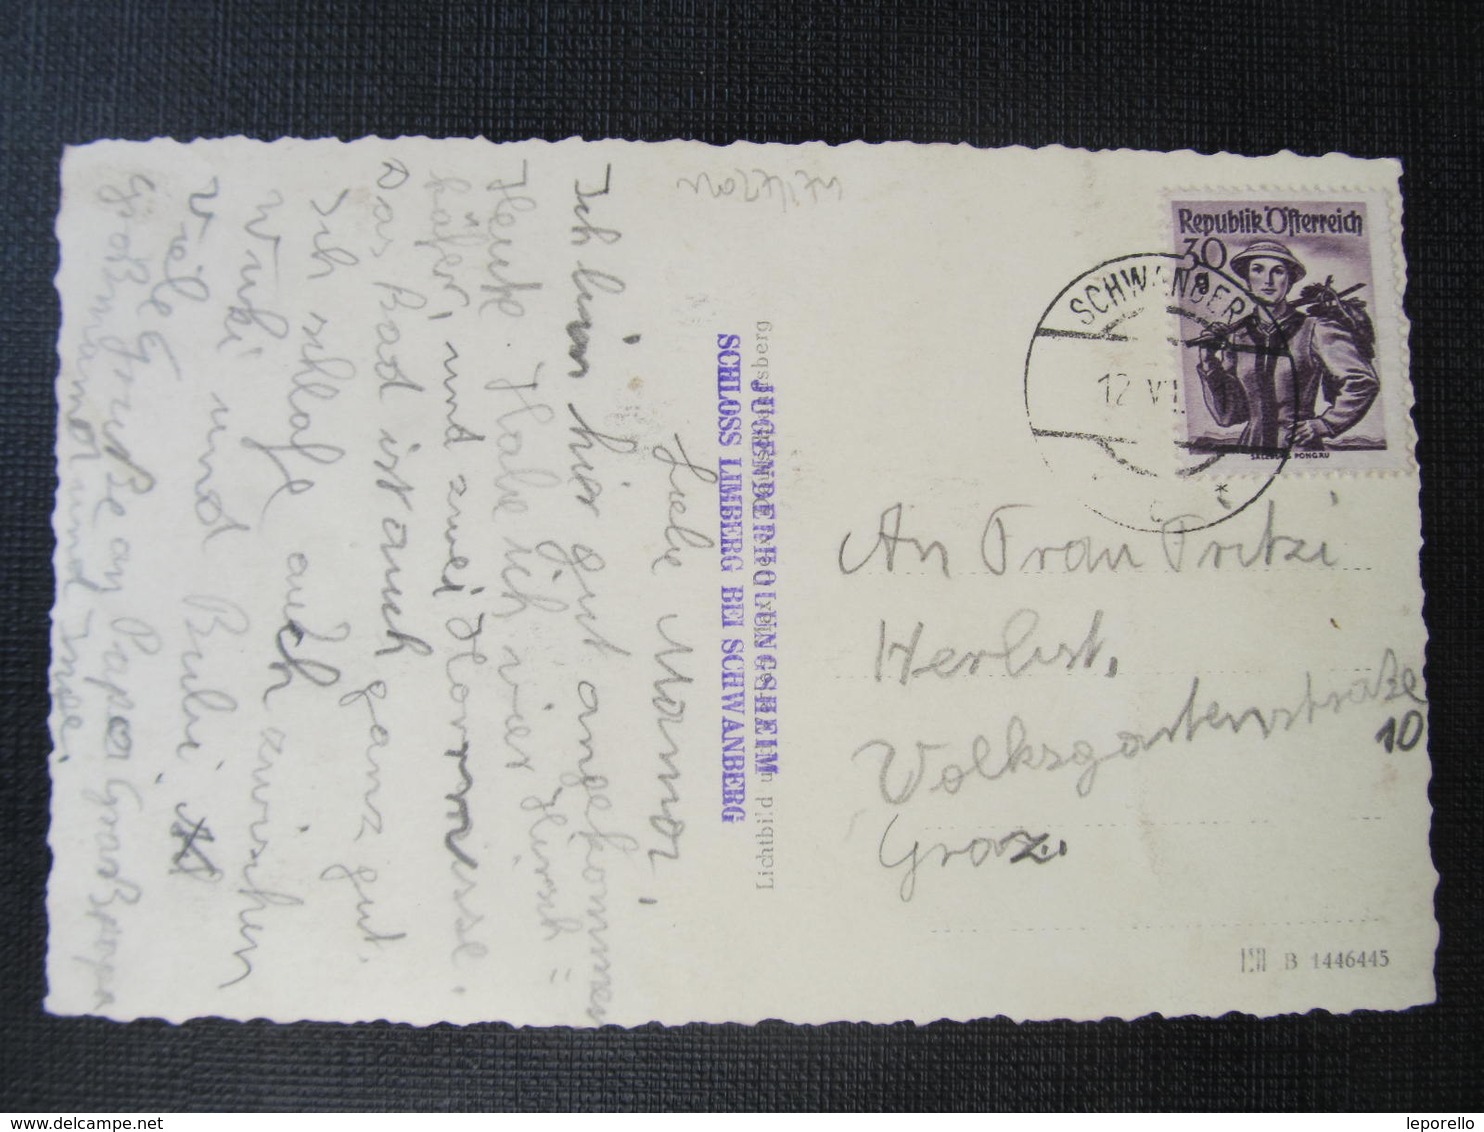 Liebe Mama,
Ich bin hier gut angekommen
Heute Habe ich vier Hirsch=
käfer und zwei Hornisse.
Das Bad ist auch ganz gut.
Ich schlafe auch zwischen
Wuki und Bubi.
Viele Grüße an Papa Großpapa
Großmama und Inge.
JUGENDERHOLUNGSHEIM
SCHLOSS LIMBERG BEI SCHWANBERG
Lichtbild u
Republik Österreich
30 g
SALZBURG, PONGAU
SCHWANBERG
12. VI
c *
An Frau Fritzi
Herbst,
Volksgartenstraße
10
Graz.
B 1446445
delcampe.net
leporello